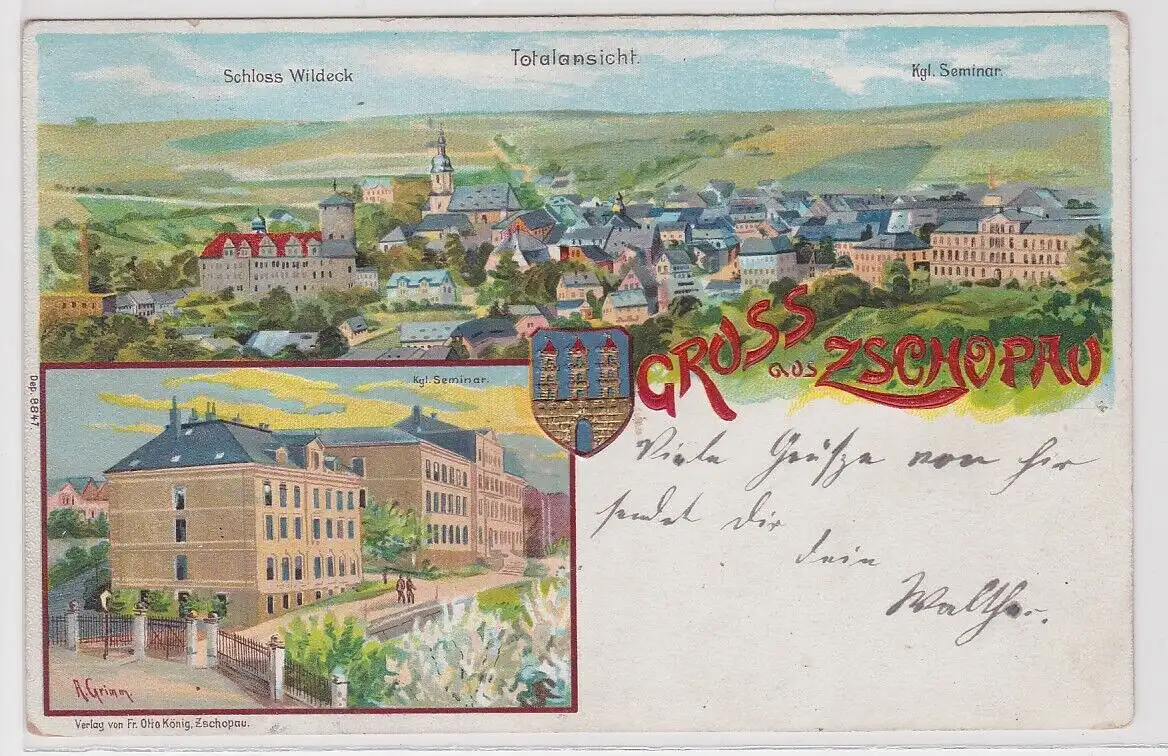 Totalansicht.
Schloss Wildeck
Kgl. Seminar.
GRUSS aus ZSCHOPAU
Kgl. Seminar.
Dep. 8847.
Viele Grüße von hir
sendet dir
dein
Walther.
A. Grimm
Verlag von Fr. Otto König, Zschopau.